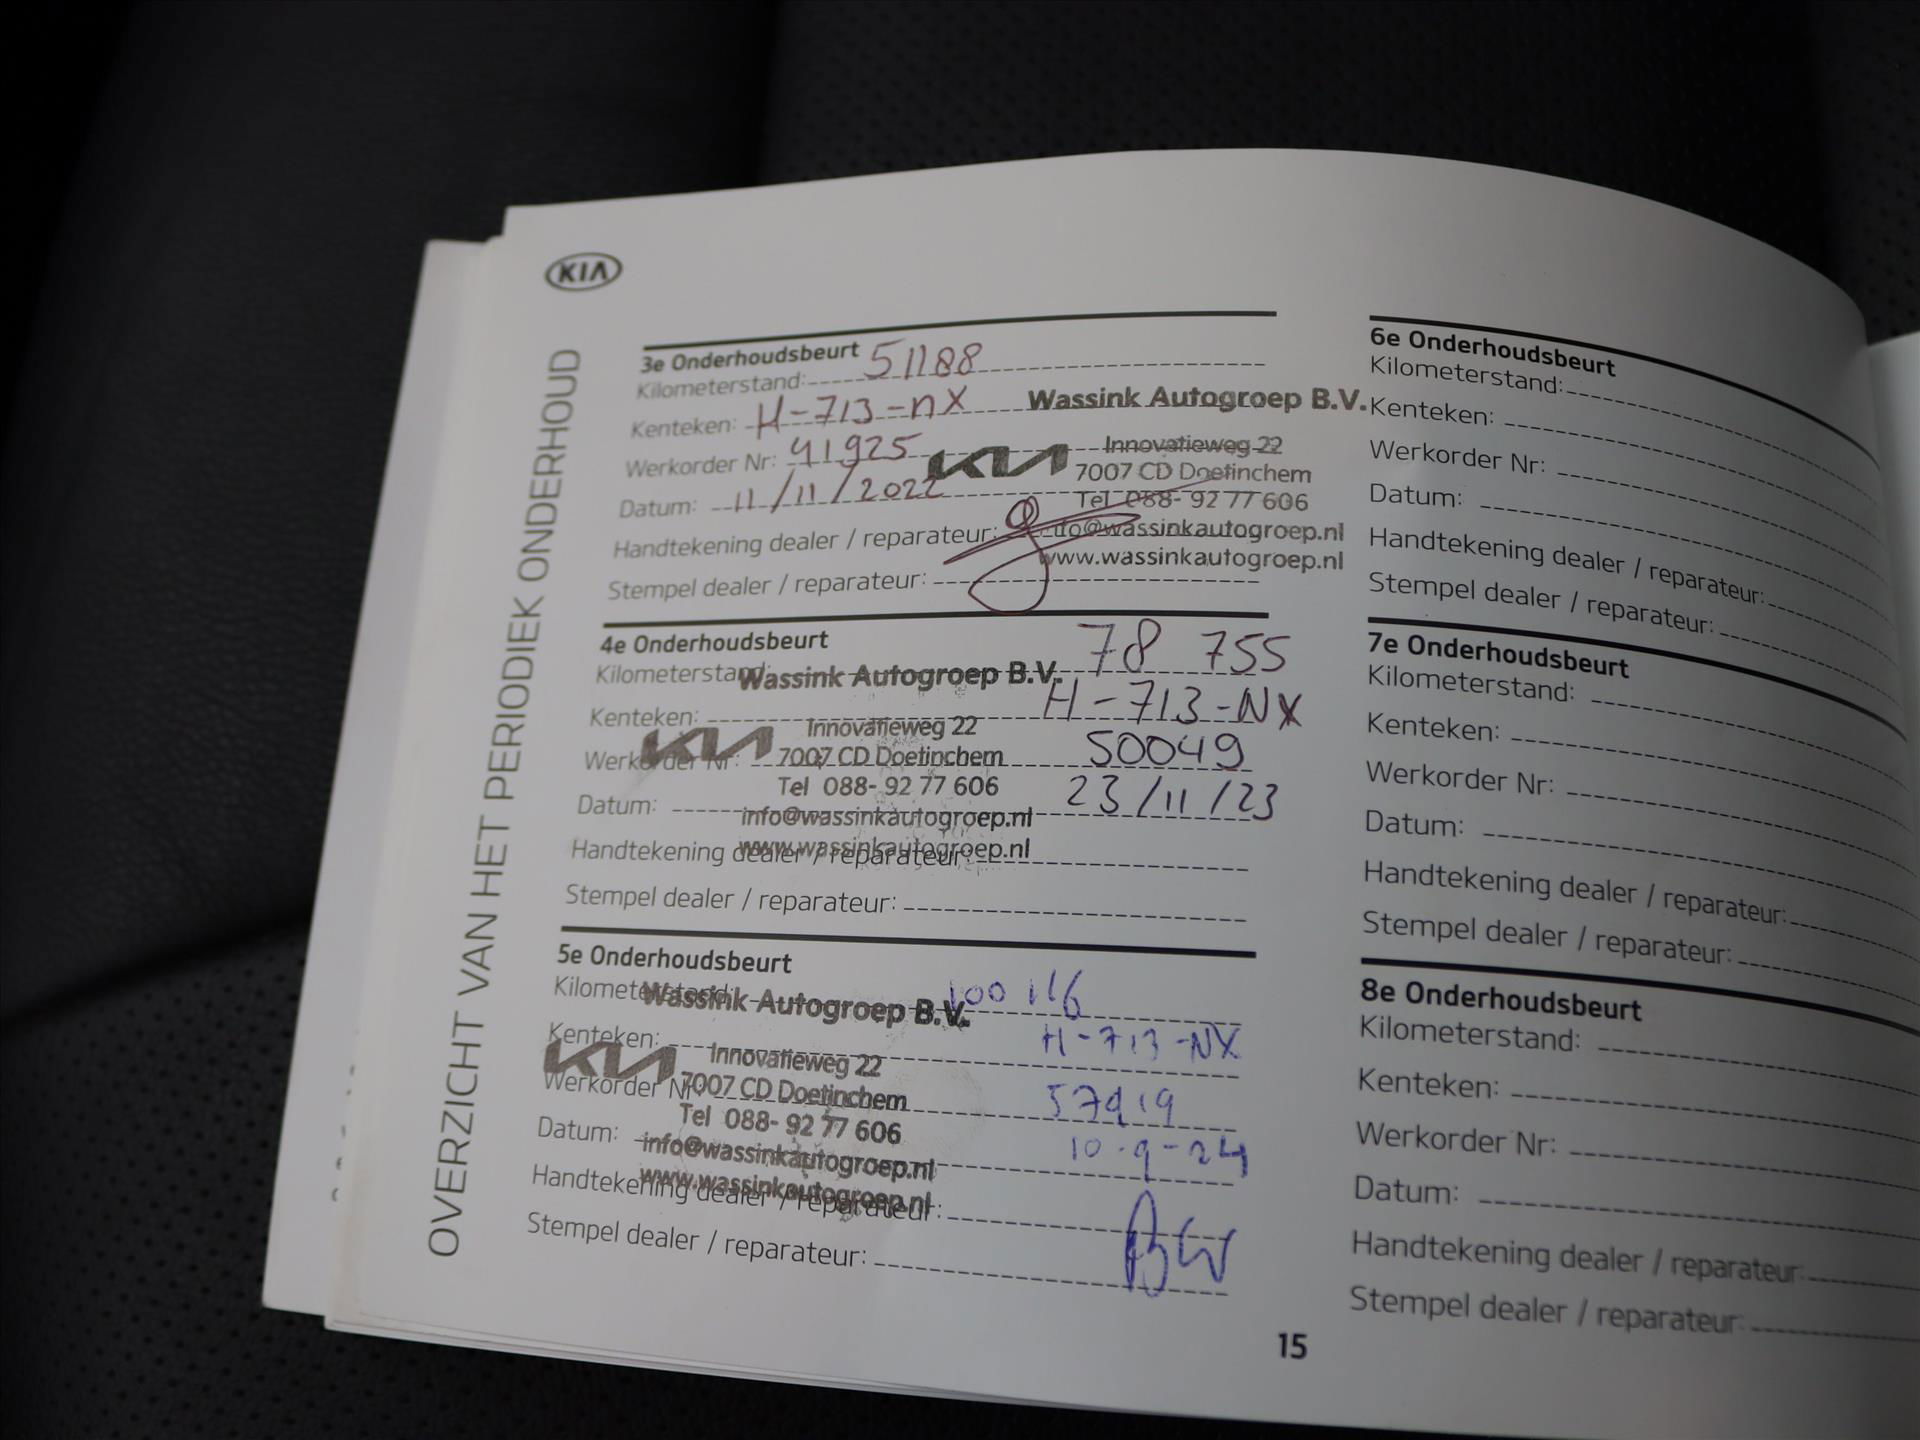 KIA
OVERZICHT VAN HET PERIODIEK ONDERHOUD
3e Onderhoudsbeurt
Kilometerstand: 51188
Kenteken: H-713-nX
Werkorder Nr: 41925
Datum: 11/11/2022
Handtekening dealer / reparateur:
Stempel dealer / reparateur:
Wassink Autogroep B.V.
KIA
Innovatieweg 22
7007 CD Doetinchem
Tel 088- 92 77 606
www.wassinkautogroep.nl
4e Onderhoudsbeurt
Kilometerstand: 78 755
Kenteken: H-713-NX
Werkorder Nr: 50049
Datum: 23/11/23
Handtekening dealer / reparateur:
Stempel dealer / reparateur:
Wassink Autogroep B.V.
KIA
Innovatieweg 22
7007 CD Doetinchem
Tel 088- 92 77 606
info@wassinkautogroep.nl
www.wassinkautogroep.nl
5e Onderhoudsbeurt
Kilometerstand: 100 116
Kenteken: H-713-NX
Werkorder Nr: 57919
Datum: 10-9-24
Handtekening dealer / reparateur:
Stempel dealer / reparateur:
Wassink Autogroep B.V.
KIA
Innovatieweg 22
7007 CD Doetinchem
Tel 088- 92 77 606
info@wassinkautogroep.nl
www.wassinkautogroep.nl
6e Onderhoudsbeurt
Kilometerstand:
Kenteken:
Werkorder Nr:
Datum:
Handtekening dealer / reparateur:
Stempel dealer / reparateur:
7e Onderhoudsbeurt
Kilometerstand:
Kenteken:
Werkorder Nr:
Datum:
Handtekening dealer / reparateur:
Stempel dealer / reparateur:
8e Onderhoudsbeurt
Kilometerstand:
Kenteken:
Werkorder Nr:
Datum:
Handtekening dealer / reparateur:
Stempel dealer / reparateur:
15